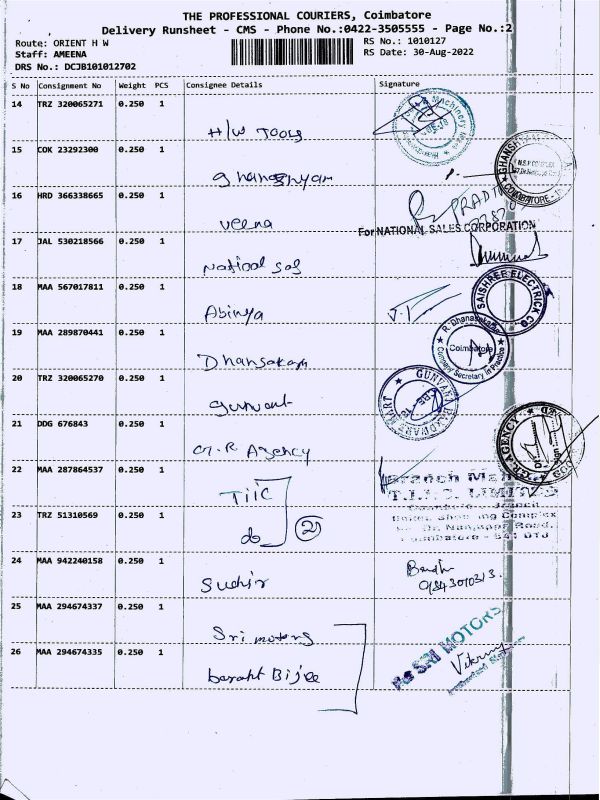 THE PROFESSIONAL COURIERS, Coimbatore
Delivery Runsheet - CMS - Phone No.:0422-3505555 - Page No.:2
Route: ORIENT H W
RS No.: 1010127
Staff: AMEENA
RS Date: 30-Aug-2022
DRS No.: DCJB101012702
S No Consignment No Weight PCS Consignee Details Signature
14 TRZ 320065271 0.250 1
H/W Tools
15 COK 23292300 0.250 1
Ghanashyam
16 HRD 366338665 0.250 1
Veena
For NATIONAL SALES CORPORATION
17 JAL 530218566 0.250 1
18 MAA 567017811 0.250 1
Abinya
SAISHREE ELECTRICK CO
19 MAA 289870441 0.250 1
R. Dhanasekaran
Coimbatore
Company Secretary in Practice
20 TRZ 320065270 0.250 1
Gunvant
GUNVANT HARDWARE MART
21 DDG 676843 0.250 1
G.R. Agency
G.R. AGENCY
22 MAA 287864537 0.250 1
TIIC
T.I.I.C. LIMITED
23 TRZ 51310569 0.250 1
do
2
24 MAA 942240158 0.250 1
Sudhir
25 MAA 294674337 0.250 1
Sri motors
SRI MOTORS
26 MAA 294674335 0.250 1